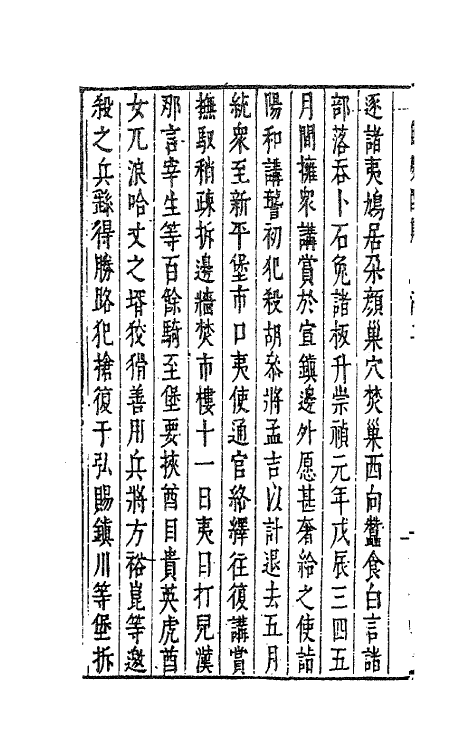 逐諸夷鳩居朶顏巢穴焚巢西向蠶食白言諸
部落吞卜石兔諸板升崇禎元年戊辰三四五
月間擁衆講賞於宣鎮邊外愿甚奢給之使詣
陽和講誓初犯殺胡叅將孟吉以計退去五月
統衆至新平堡市口夷使通官絡繹往復講賞
撫馭稍疎拆邊牆焚市樓十一日夷目打兒漢
那言宰生等百餘騎至堡要挾酋目貴英虎酋
女兀浪哈丈之壻狡猾善用兵將方裕崑等邀
殺之兵繇得勝路犯搶復于弘賜鎮川等堡拆